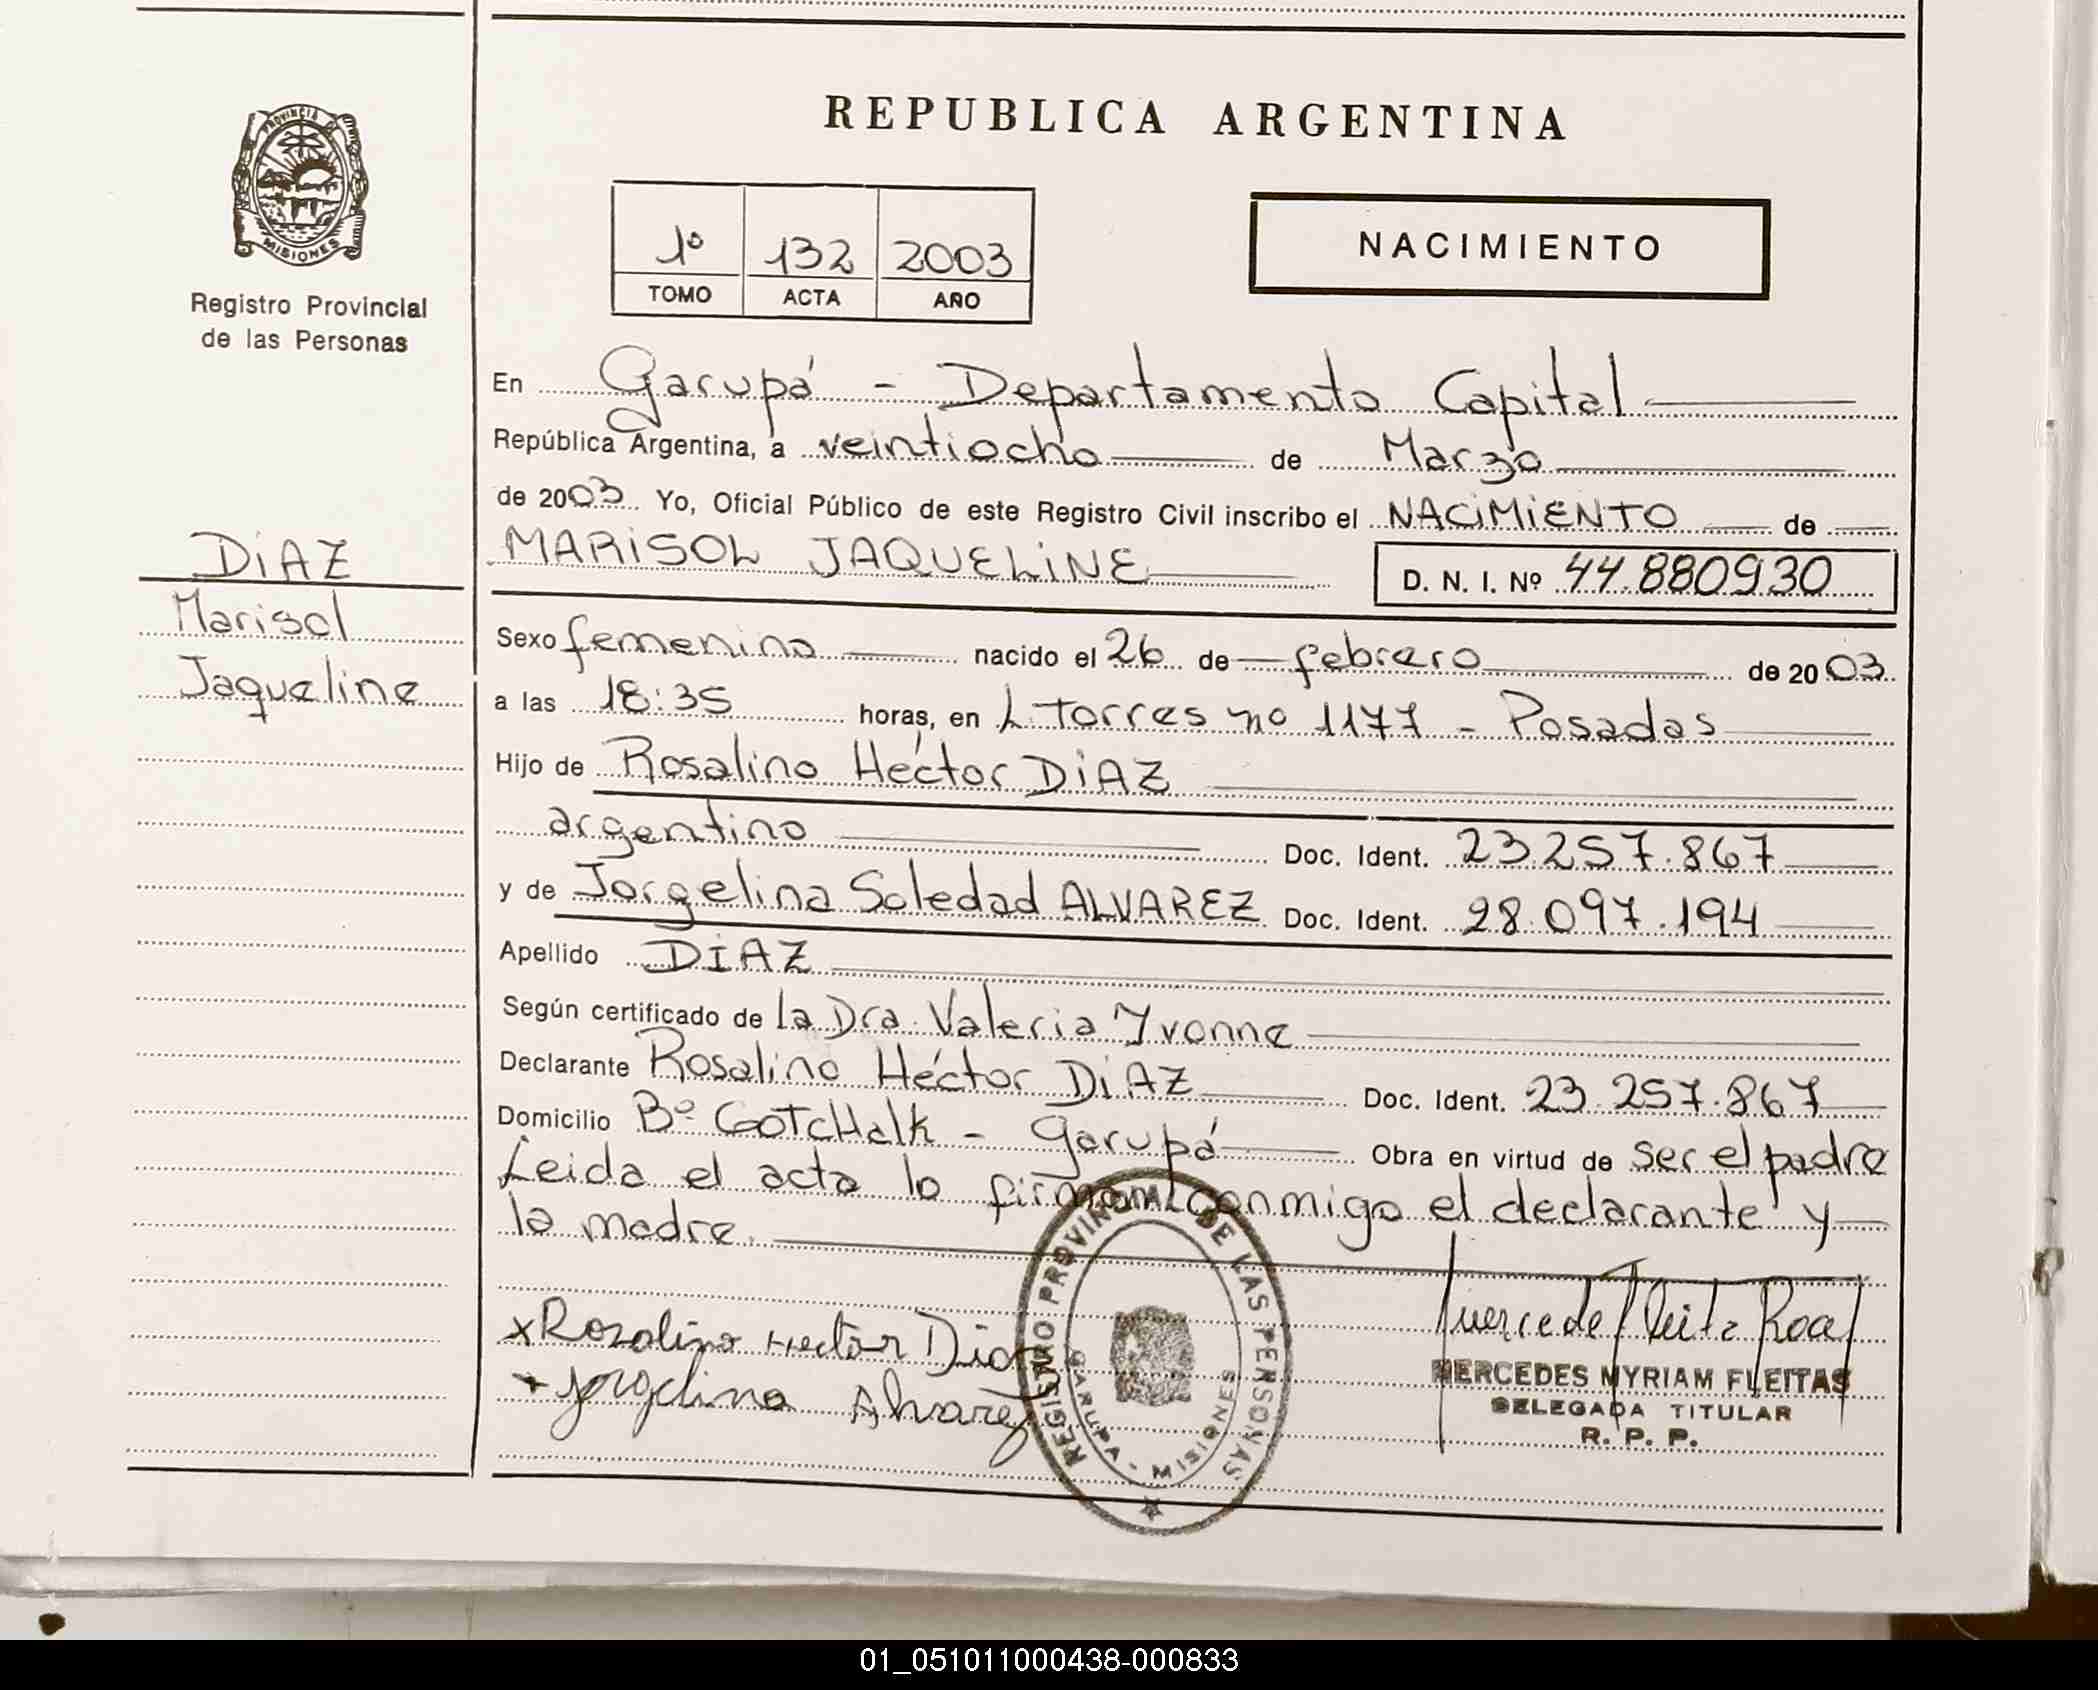 PROVINCIA DE
MISIONES
Registro Provincial
de las Personas
DiAZ
Marisol
Jaqueline
REPUBLICA ARGENTINA
1º 132 2003
TOMO ACTA AÑO
NACIMIENTO
En Garupá - Departamento Capital
República Argentina, a veintiocho de Marzo
de 2003 Yo, Oficial Público de este Registro Civil inscribo el NACiMiENTO de
MARiSOL JAQUELiNE D. N. I. Nº 44.880930
Sexo femenino nacido el 26 de febrero de 2003
a las 18:35 horas, en L. Torres nº 1177 - Posadas
Hijo de Rosalino Héctor DiAZ
argentino Doc. Ident. 23.257.867
y de Jorgelina Soledad ALVAREZ Doc. Ident. 28.097.194
Apellido DiAZ
Según certificado de la Dra. Valeria Yvonne
Declarante Rosalino Héctor DiAZ Doc. Ident. 23.257.867
Domicilio Bº GOTcHalk - Garupá Obra en virtud de ser el padre
Leida el acta lo firman conmigo el declarante y
la madre.
x Rozalino Hector Diaz
x Jorgelina Alvarez
REGISTRO PROVINCIAL DE LAS PERSONAS
GARUPA - MISIONES
MERCEDES MYRIAM FLEITAS
DELEGADA TITULAR
R. P. P.
01_051011000438-000833